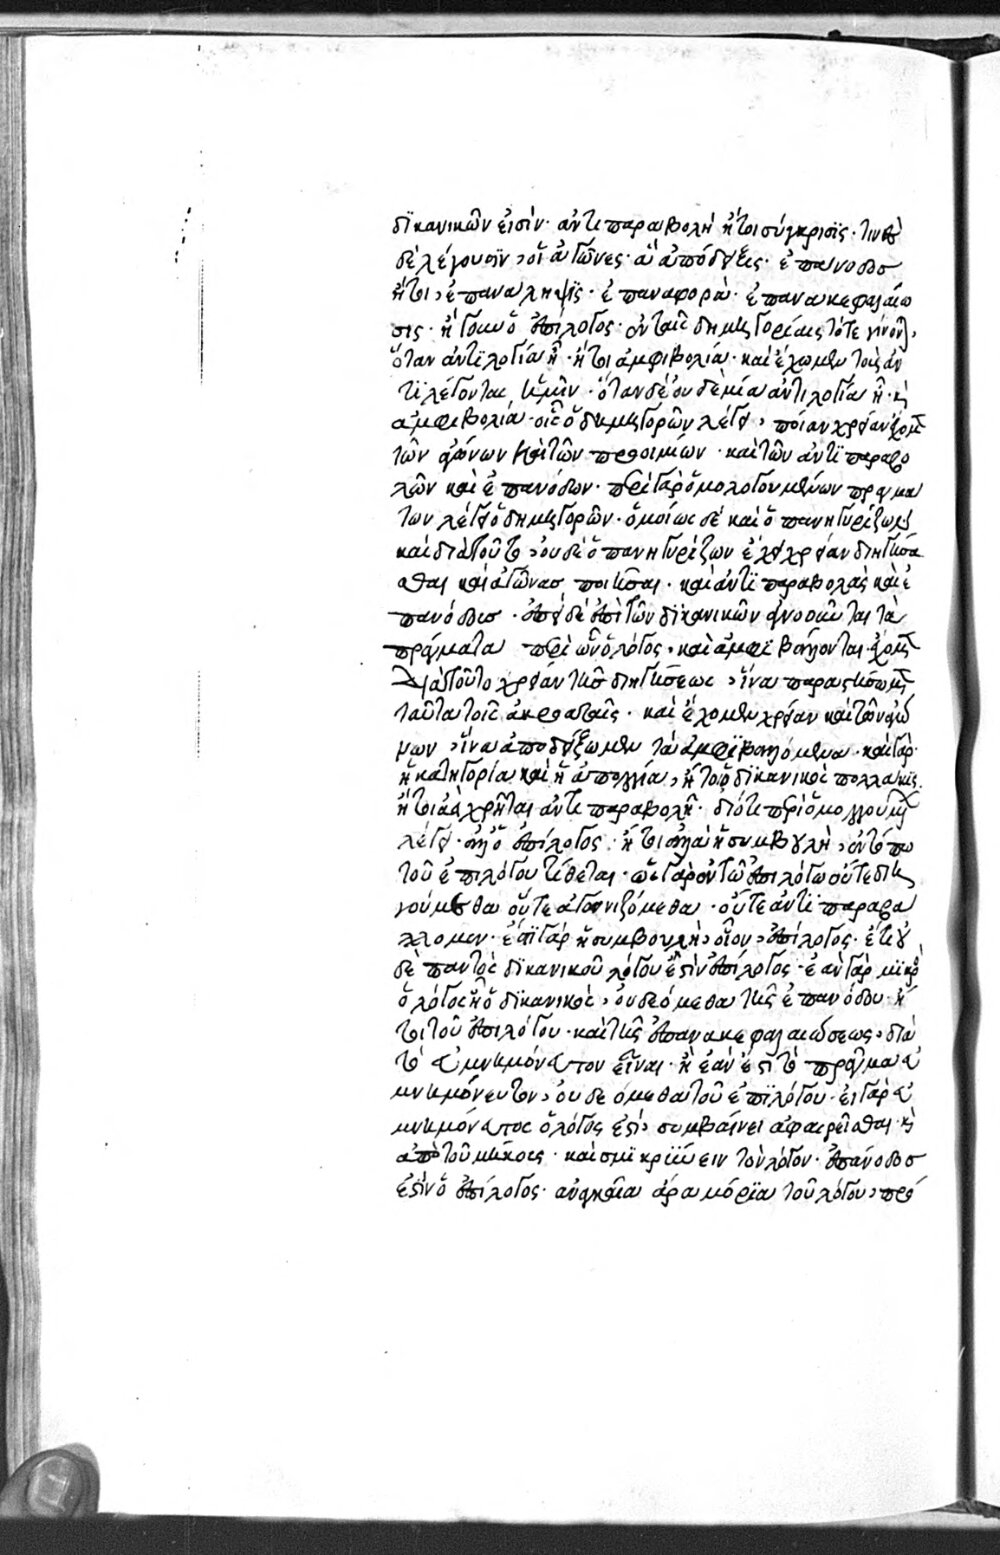 δϊκανικῶν εἰσίν· ἀντιπαραβολὴ ἤτοι σύγκρισϊς· τινὲς
δὲ λέγουσϊν, οἷ ἀγῶνες· αἱ ἀποδείξεις· ἐπάνοδος
ἤτοι, ἐπανάληψϊς· ἐπαναφορὰ· ἐπανακεφαλαίω
σις· ἤγουν ὁ ἐπίλογος· ἐν ταῖς δημηγορίαις τότε γίνονται,
ὅταν ἀντϊλογία ἦ· ἤτοι ἀμφιβολία· καὶ ἔχωμεν τοὺς ἀν
τϊλέγοντας ἡμῖν· ὅταν δὲ οὐδεμία ἀντιλογία ἦ· καὶ
ἀμφιβολία· οἷς ὁ δημηγορῶν λέγει, ποίαν χρείαν ἔχομεν
τῶν ἀγώνων καὶ τῶν προοιμίων· καὶ τῶν ἀντϊπαραβο
λῶν καὶ ἐπανόδων· περὶ γὰρ ὁμολογουμένων πραγμά
των λέγει ὁ δημηγορῶν· ὁμοίως δὲ καὶ ὁ πανηγυρίζων
καὶ διὰ τοῦτο, οὐδὲ ὁ πανηγυρίζων ἔχει χρείαν διηγήσα
σθαι καὶ ἀγῶνας ποιῆσαι· καὶ ἀντϊπαραβολὰς καὶ ἐ
πανόδους· ἐπεὶ δὲ ἐπὶ τῶν δϊκανικῶν ἀγνοοῦνται τὰ
πράγματα περὶ ὧν ὁ λόγος, καὶ ἀμφϊβάλλονται ἔχομεν
Διὰ τοῦτο χρείαν τῆς διηγήσεως, ἵνα παραστήσωμεν
ταῦτα τοῖς ἀκροαταῖς· καὶ ἔχομεν χρείαν καὶ τῶν ἀγώ
νων, ἵνα ἀποδείξωμεν τὰ ἀμφϊβαλλόμενα· καὶ γὰρ
ἡ κατηγορία καὶ ἡ ἀπολογία, ἤτοι ὁ δϊκανικὸς πολλάκις
λέγει· ἀλλ' ὁ ἐπίλογος· ἤτοι ἀλλὰ ἡ συμβουλὴ, ἐν τόπω
τοῦ ἐπιλόγου τίθεται· ὡς γὰρ ἐν τῶ ἐπιλόγω οὔτε διη
γούμεθα οὔτε ἀγωνιζόμεθα· οὔτε ἀντϊπαραβά
λλομεν· ἐστὶ γὰρ ἡ συμβουλὴ, οἷον, ἐπίλογος· ἔτι οὐ
δὲ παντὸς δϊκανικοῦ λόγου ἐστὶν ἐπίλογος· ἐὰν γὰρ μϊκρὸς
ὁ λόγος ἦ ὁ δϊκανικὸς, οὐ δεόμεθα τῆς ἐπανόδου· ἤ
τοι τοῦ ἐπιλόγου· καὶ τῆς ἐπανακεφαλαιώσεως, διὰ
τὸ εὐμνημόνευτον εἶναι· ἢ ἐάν ἐστι τὸ πρᾶγμα εὐ
μνημόνευτον, οὐ δεόμεθα τοῦ ἐπϊλόγου· εἰ γὰρ εὐ
μνημόνευτος ὁ λόγος ἐστὶ, συμβαίνει ἀφαιρεῖσθαι καὶ
ἀπὸ τοῦ μήκους· καὶ σμϊκρύνειν τὸν λόγον· ἐπάνοδος
ἐστὶν ὁ ἐπίλογος· ἀναγκαῖα ἄρα μόρϊα τοῦ λόγου, πρό